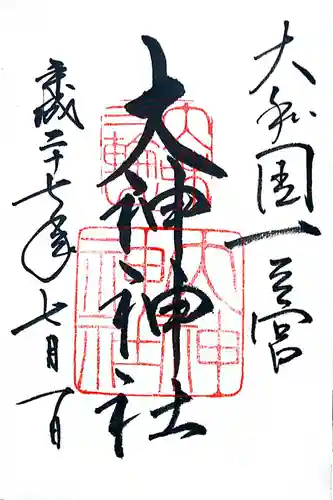 大和国一之宮
大神神社
平成二十七年七月一日
三輪
大神
神社